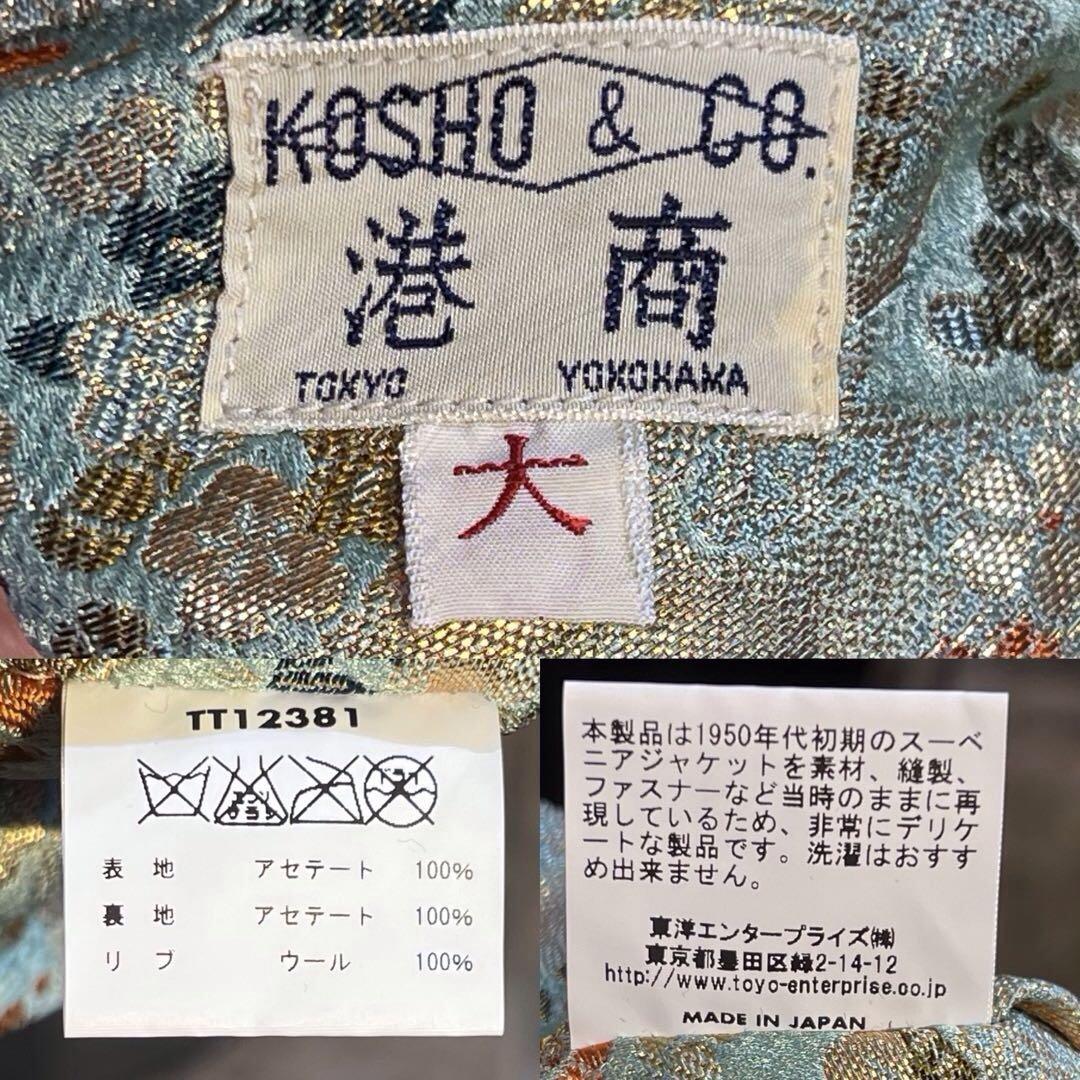 KOSHO & CO.
港商
TOKYO YOKOHAMA
大
TT12381
エンソサラシ
ドライ
表地 アセテート 100%
裏地 アセテート 100%
リブ ウール 100%
本製品は1950年代初期のスーベ
ニアジャケットを素材、縫製、
ファスナーなど当時のままに再
現しているため、非常にデリケ
ートな製品です。洗濯はおすす
め出来ません。
東洋エンタープライズ㈱
東京都墨田区緑2-14-12
http://www.toyo-enterprise.co.jp
MADE IN JAPAN